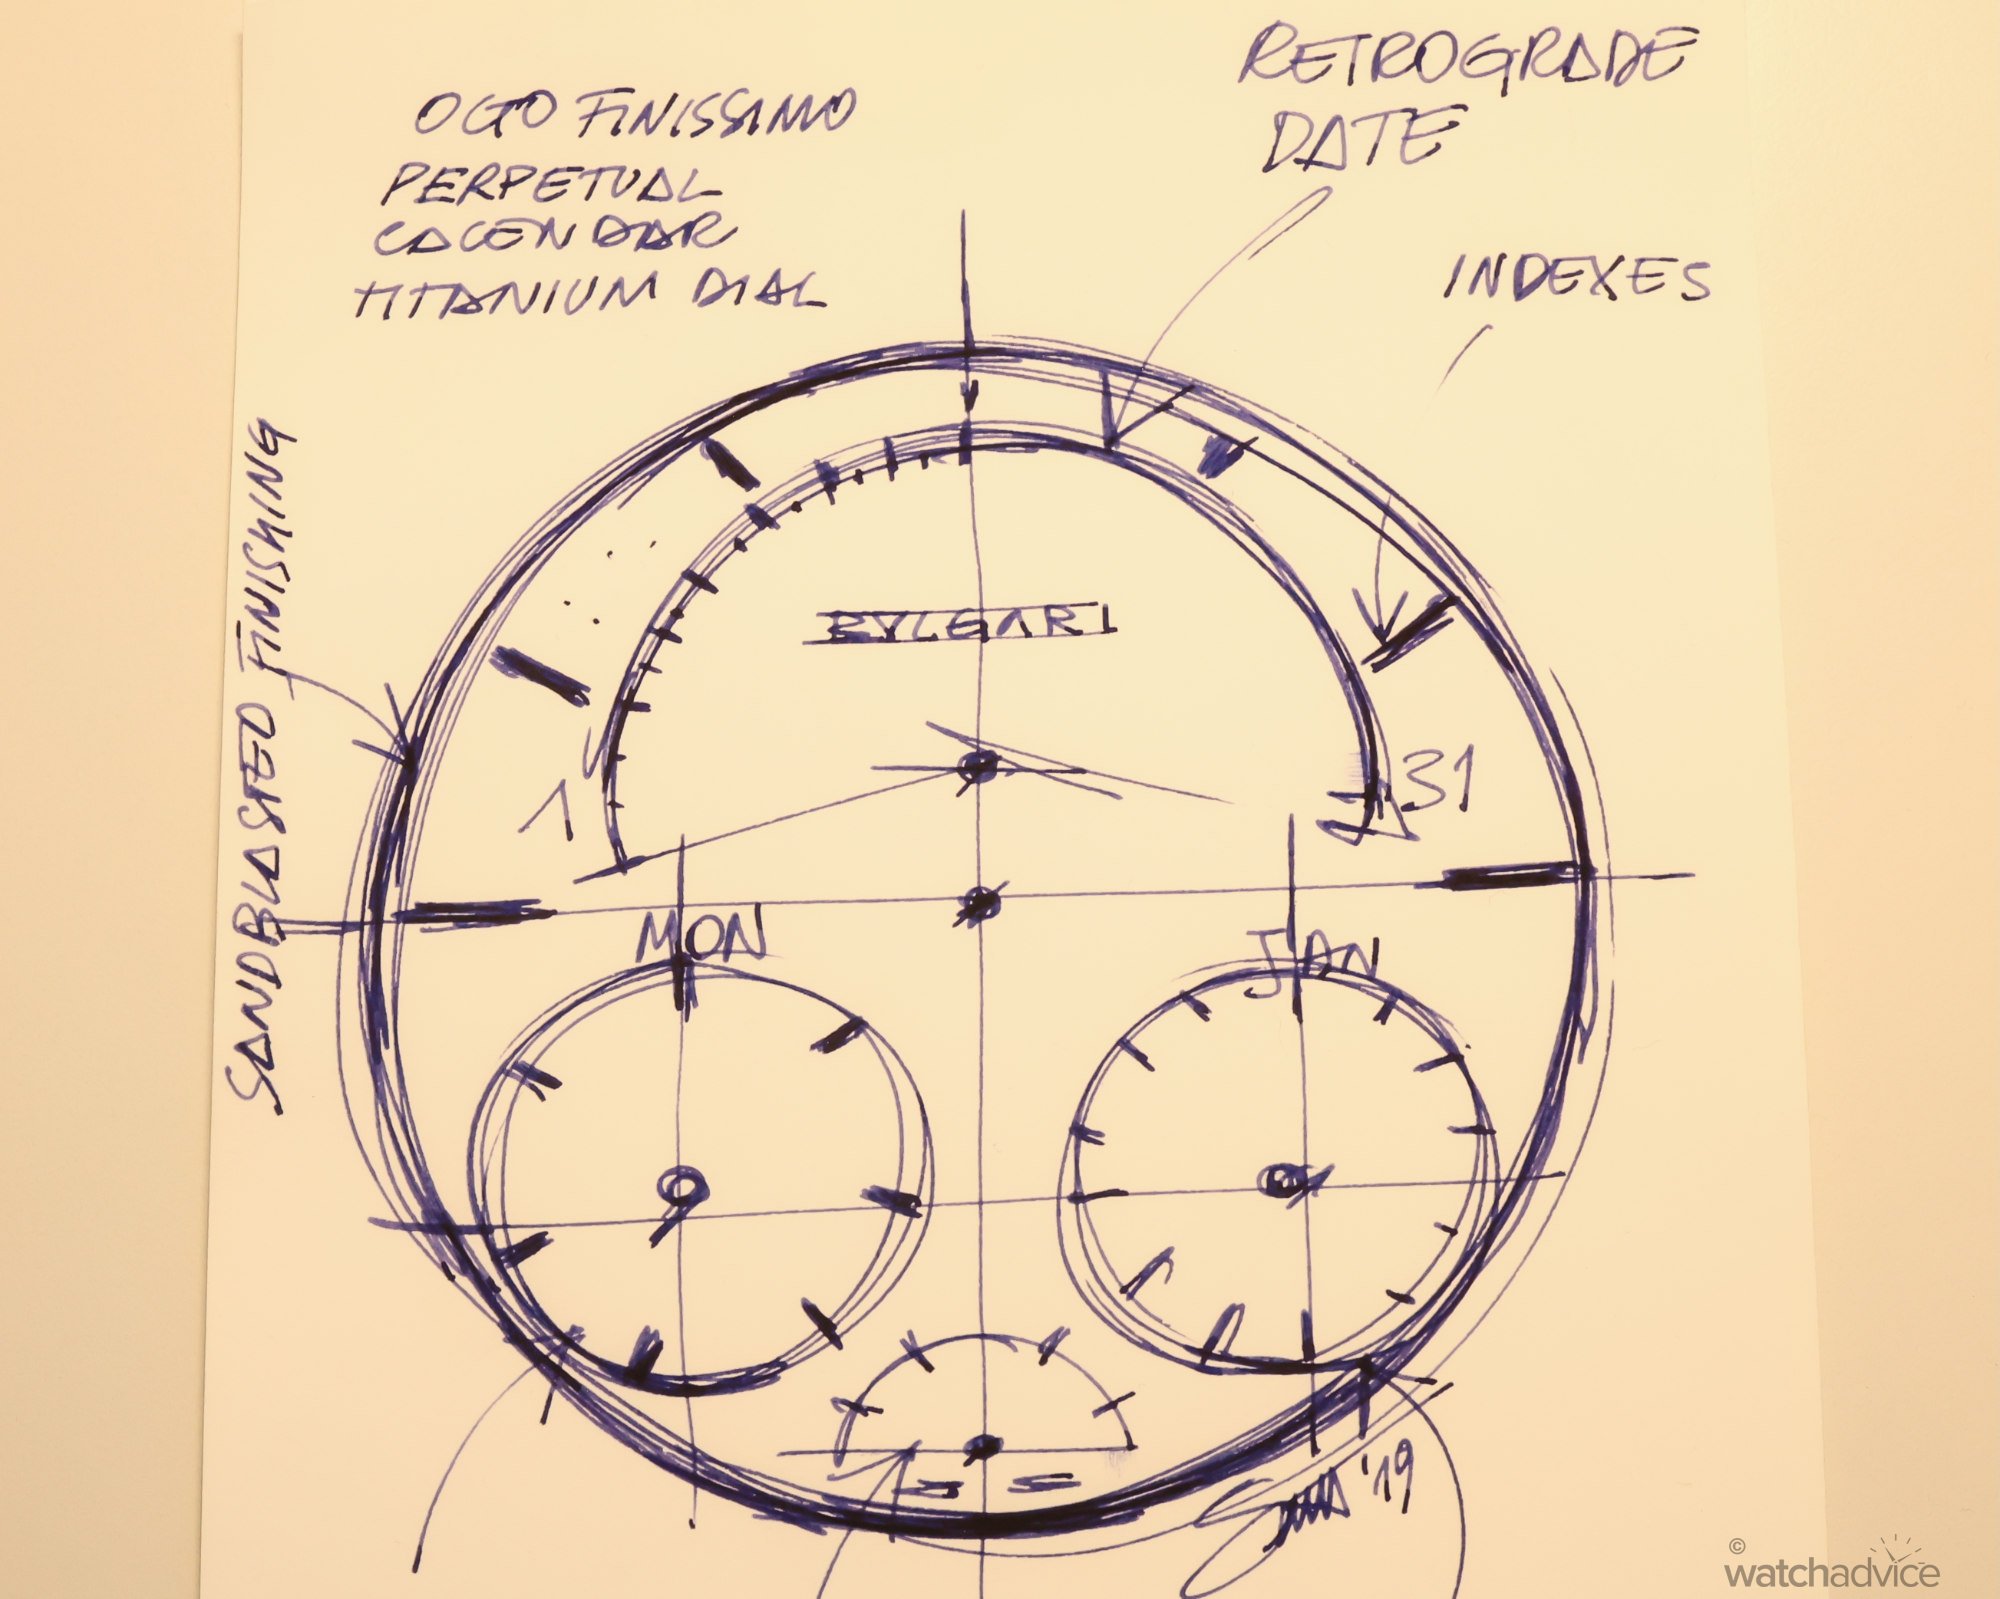 RETROGRADE
DATE
OCTO FINISSIMO
PERPETUAL
CALENDAR
TITANIUM DIAL
INDEXES
SANDBLASTED FINISHING
BVLGARI
1
31
MON
JAN
'19
© watchadvice